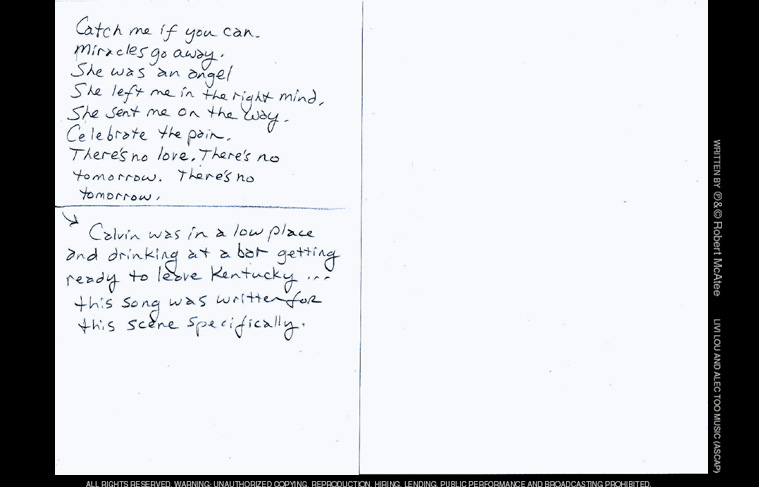 Catch me if you can.
Miracles go away.
She was an angel
She left me in the right mind,
She sent me on the way.
Celebrate the pain.
There's no love. There's no
tomorrow. There's no
tomorrow.
Calvin was in a low place
and drinking at a bar getting
ready to leave Kentucky ...
this song was written for
this scene specifically.
WRITTEN BY ℗&© Robert McAtee
LIVI LOU AND ALEC TOO MUSIC (ASCAP)
ALL RIGHTS RESERVED. WARNING: UNAUTHORIZED COPYING, REPRODUCTION, HIRING, LENDING, PUBLIC PERFORMANCE AND BROADCASTING PROHIBITED.